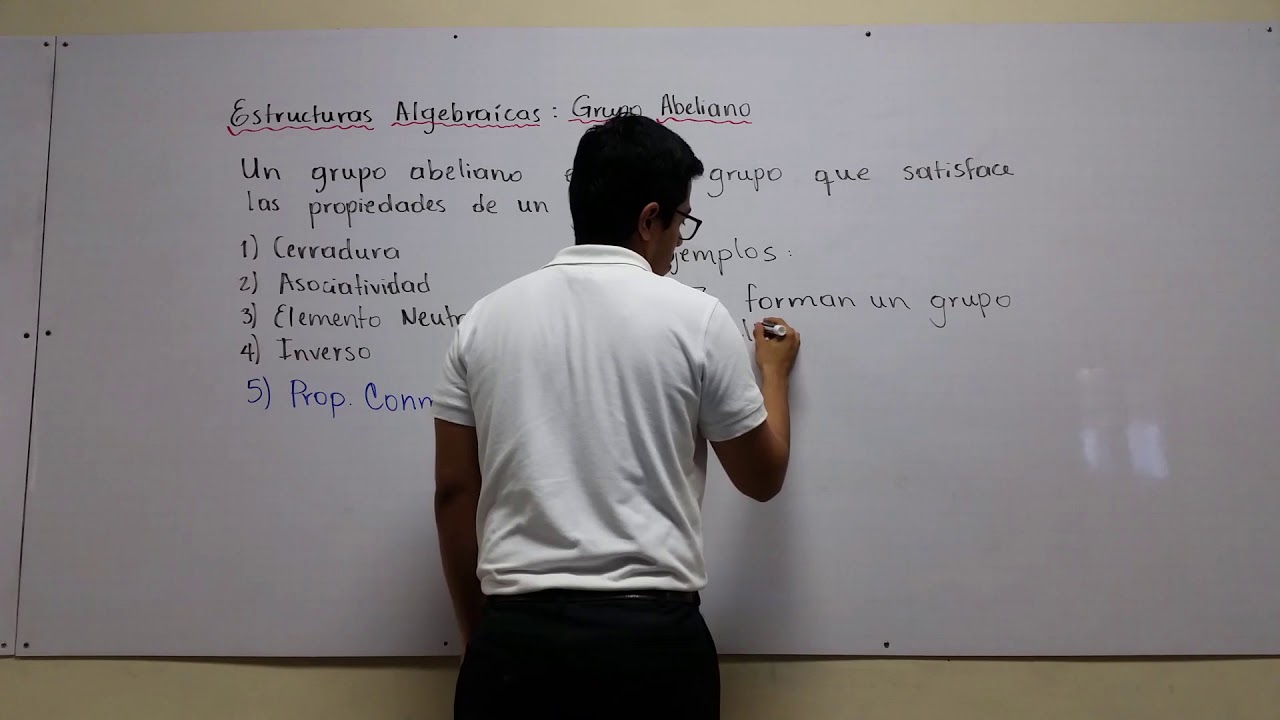 Estructuras Algebraícas: Grupo Abeliano
Un grupo abeliano grupo que satisface
las propiedades de un
1) Cerradura
2) Asociatividad
3) Elemento Neutr
4) Inverso
5) Prop. Conm
jemplos:
forman un grupo